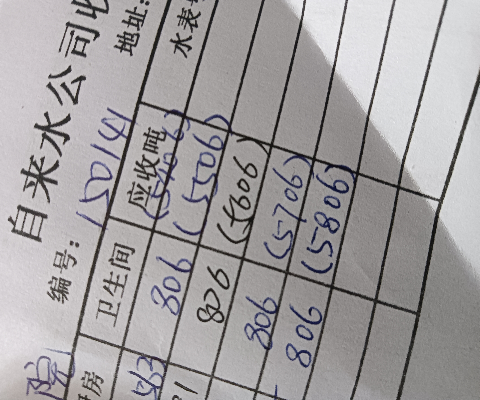 自来水公司收
编号: 150141 地址:
卫生间 应收吨 水表
院 房
806 (5406)
806 (5506)
806 (5606)
806 (5706)
806 (5806)